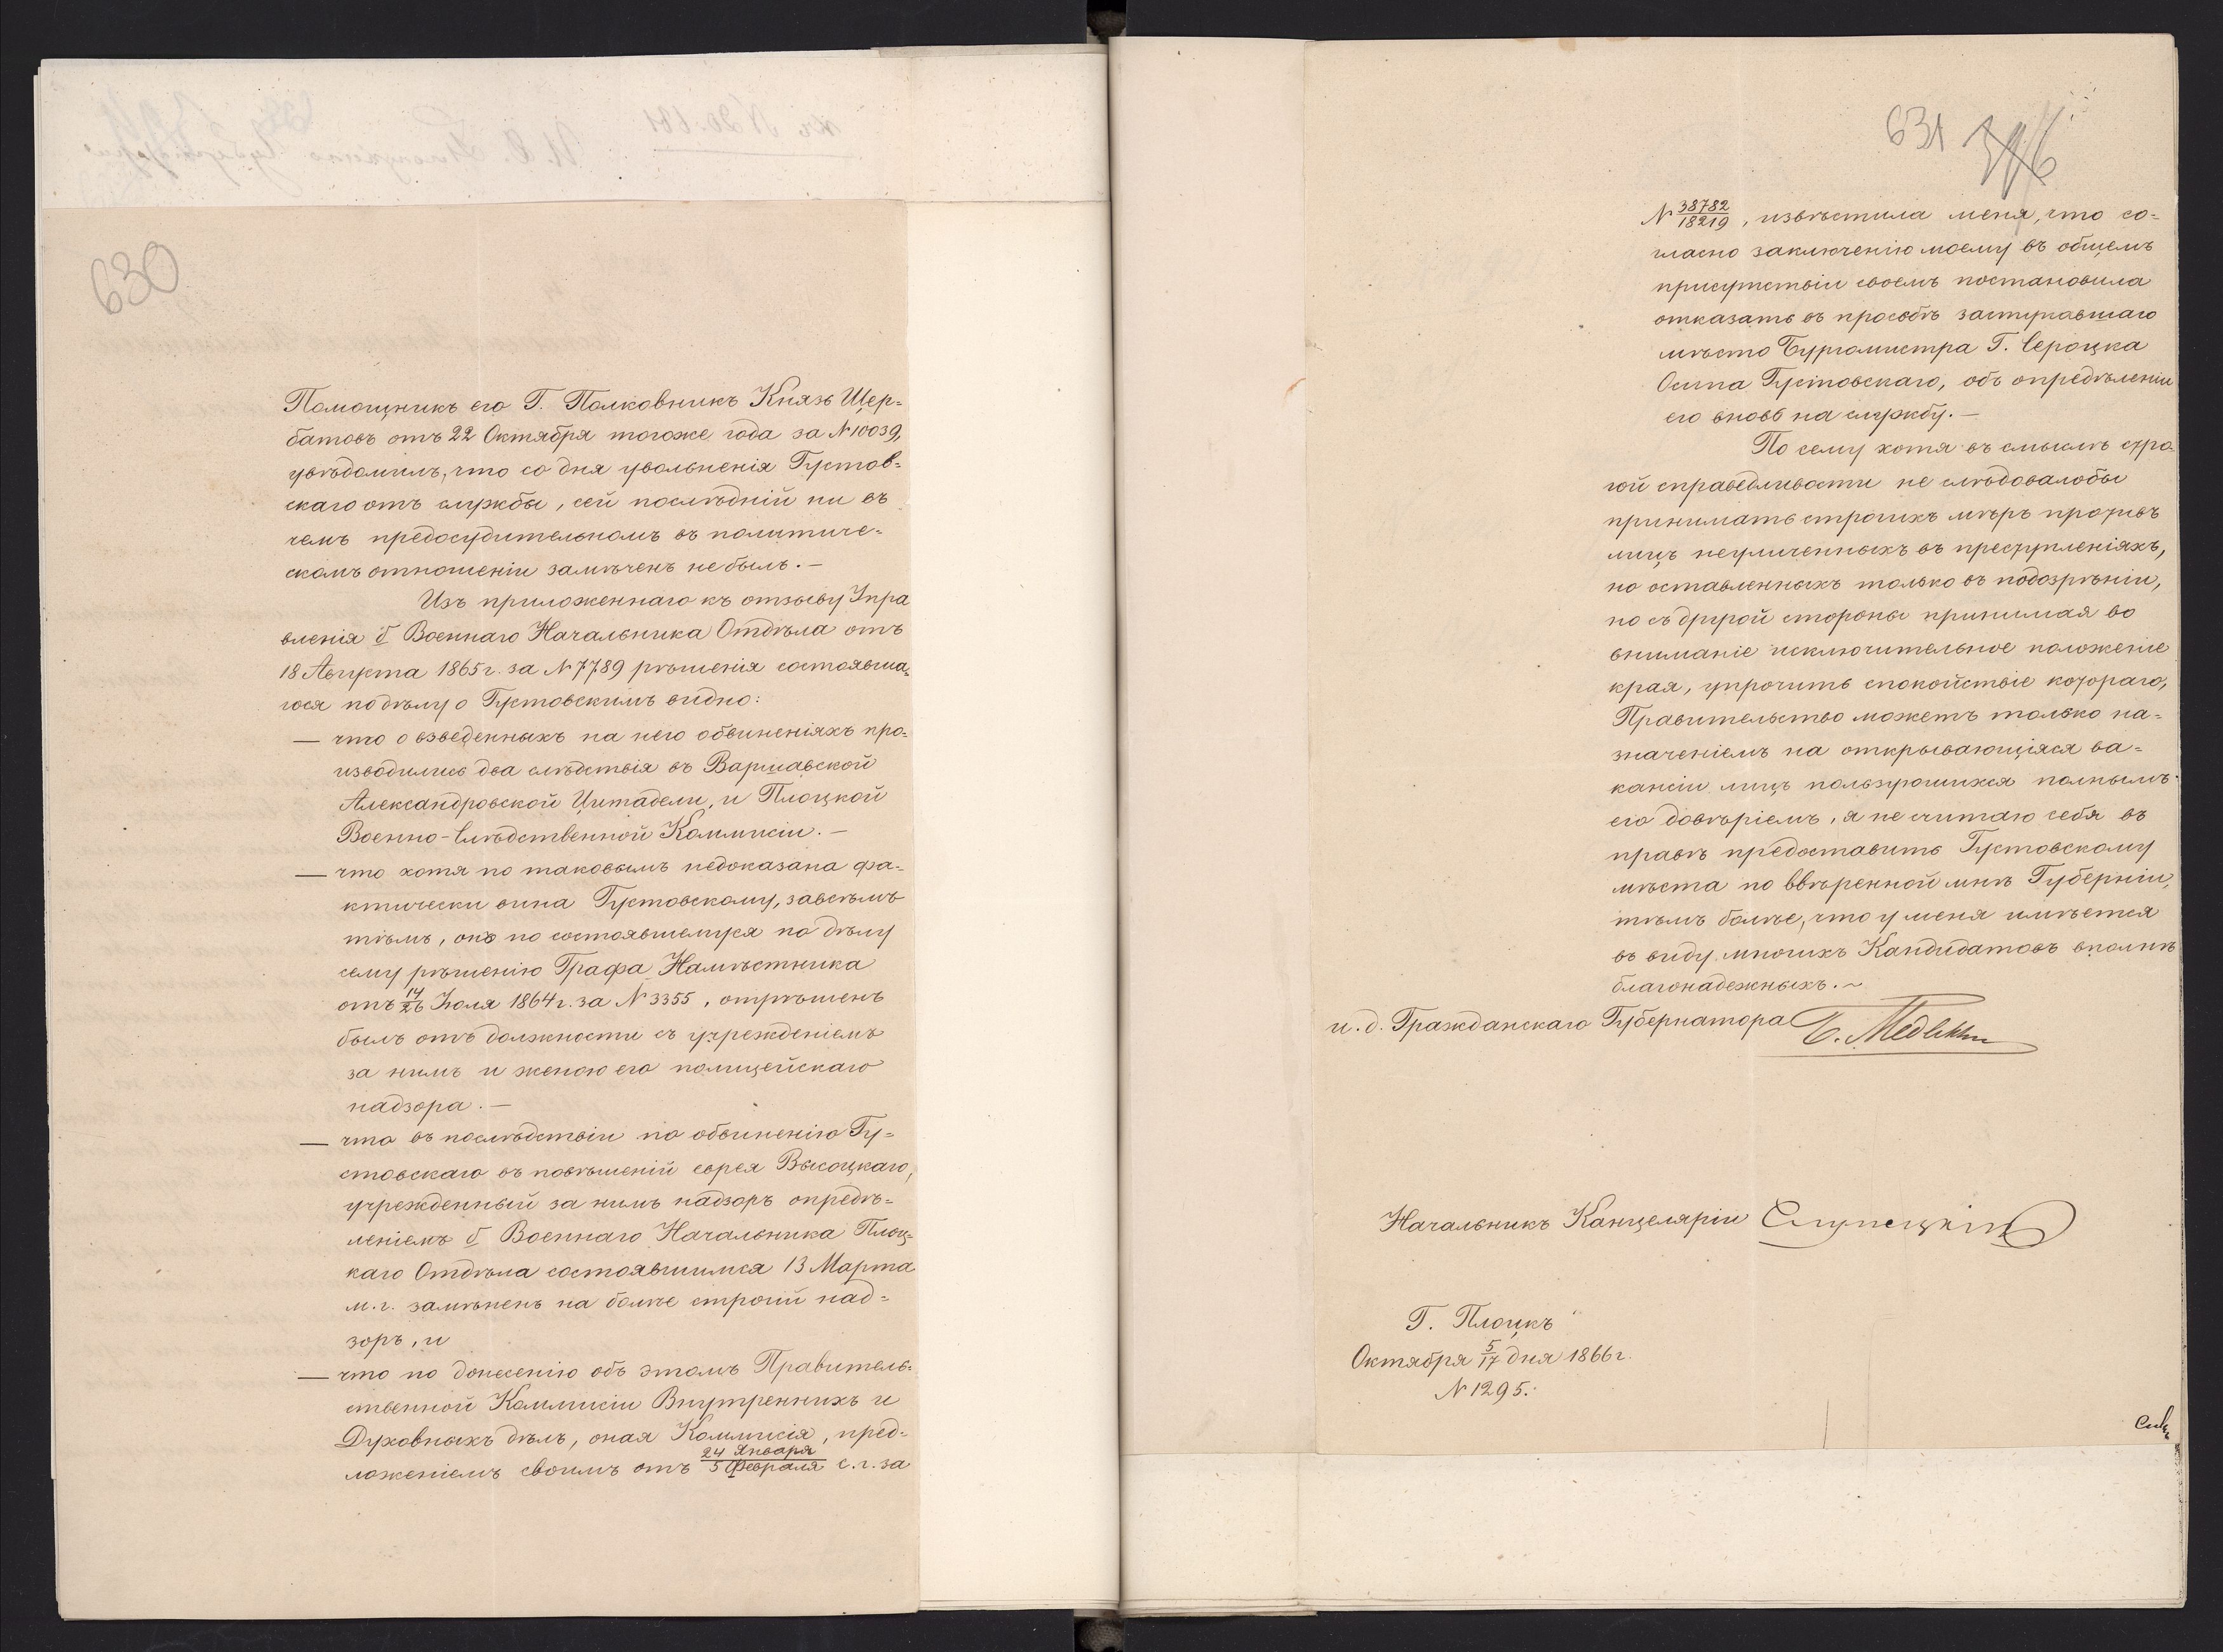 630
Помощникъ его Г. Полковникъ Князь Щер=
батовъ отъ 22 Октября тогоже года за № 10039,
увѣдомилъ, что со дня увольненія Густов=
скаго отъ службы, сей послѣдній ни въ
чемъ предосудительномъ въ политиче=
скомъ отношеніи замѣченъ небылъ.—
Изъ приложеннаго къ отзыву Упра
вленія Г. Военнаго Начальника Отдѣла отъ
18 Августа 1865 г. за № 7789 рѣшенія состоявша=
гося по дѣлу о Густовскимъ видно:
— что о взведенныхъ на него обвиненіяхъ про=
изводились два слѣдствія въ Варшавской
Александровской Цитадели, и Плоцкой
Военно-Слѣдственной Коммисіи.—
— что хотя по таковымъ недоказана фа=
ктически вина Густовскому, завсѣмъ
тѣмъ, онъ по состоявшемуся по дѣлу
сему рѣшенію Графа Намѣстника
отъ 14/26 Іюля 1864 г. за № 3355, отрѣшенъ
былъ отъ должности съ учрежденіемъ
за нимъ и женою его полицейскаго
надзора.—
— что въ послѣдствіи по обвиненію Гу=
стовскаго въ повѣшеній еврея Высоцкаго,
учрежденный за нимъ надзоръ опредѣ=
леніемъ Г. Военнаго Начальника Плоц=
каго Отдѣла состоявшимся 13 Марта
м.г. замѣненъ на болѣе строгій над=
зоръ, и
— что по донесенію объ этомъ Правитель=
ственной Коммисіи Внутреннихъ и
Духовныхъ дѣлъ, оная Коммисія, пред=
ложеніемъ своимъ отъ 24 Января/5 Февраля с.г. за
631 346
№ 38782/18219, извѣстила меня, что со=
гласно заключенію моему въ общемъ
присутствіи своемъ постановила
отказать въ просьбѣ заступавшаго
мѣсто Бургомистра Г. Сероцка
Осипа Густовскаго, объ опредѣленіи
его вновь на службу.—
По сему хотя въ смыслѣ стро=
гой справедливости не слѣдовалобы
принимать строгихъ мѣръ противъ
лицъ неуличенныхъ въ преступленіяхъ,
но оставленныхъ только въ подозрѣніи,
но съ другой стороны принимая во
вниманіе исключительное положеніе
края, упрочить спокойствіе котораго,
Правительство можетъ только на=
значеніемъ на открывающіяся ва=
кансіи лицъ пользующихся полнымъ
его довѣріемъ, я не считаю себя въ
правѣ предоставить Густовскому
мѣста по ввѣренной мнѣ Губерніи,
тѣмъ болѣе, что у меня имѣется
въ виду многихъ Кандидатовъ вполнѣ
благонадежныхъ.~
и.д. Гражданскаго Губернатора
Начальникъ Канцеляріи
Г. Плоцкъ
Октября 5/17 дня 1866 г.
№ 1295.